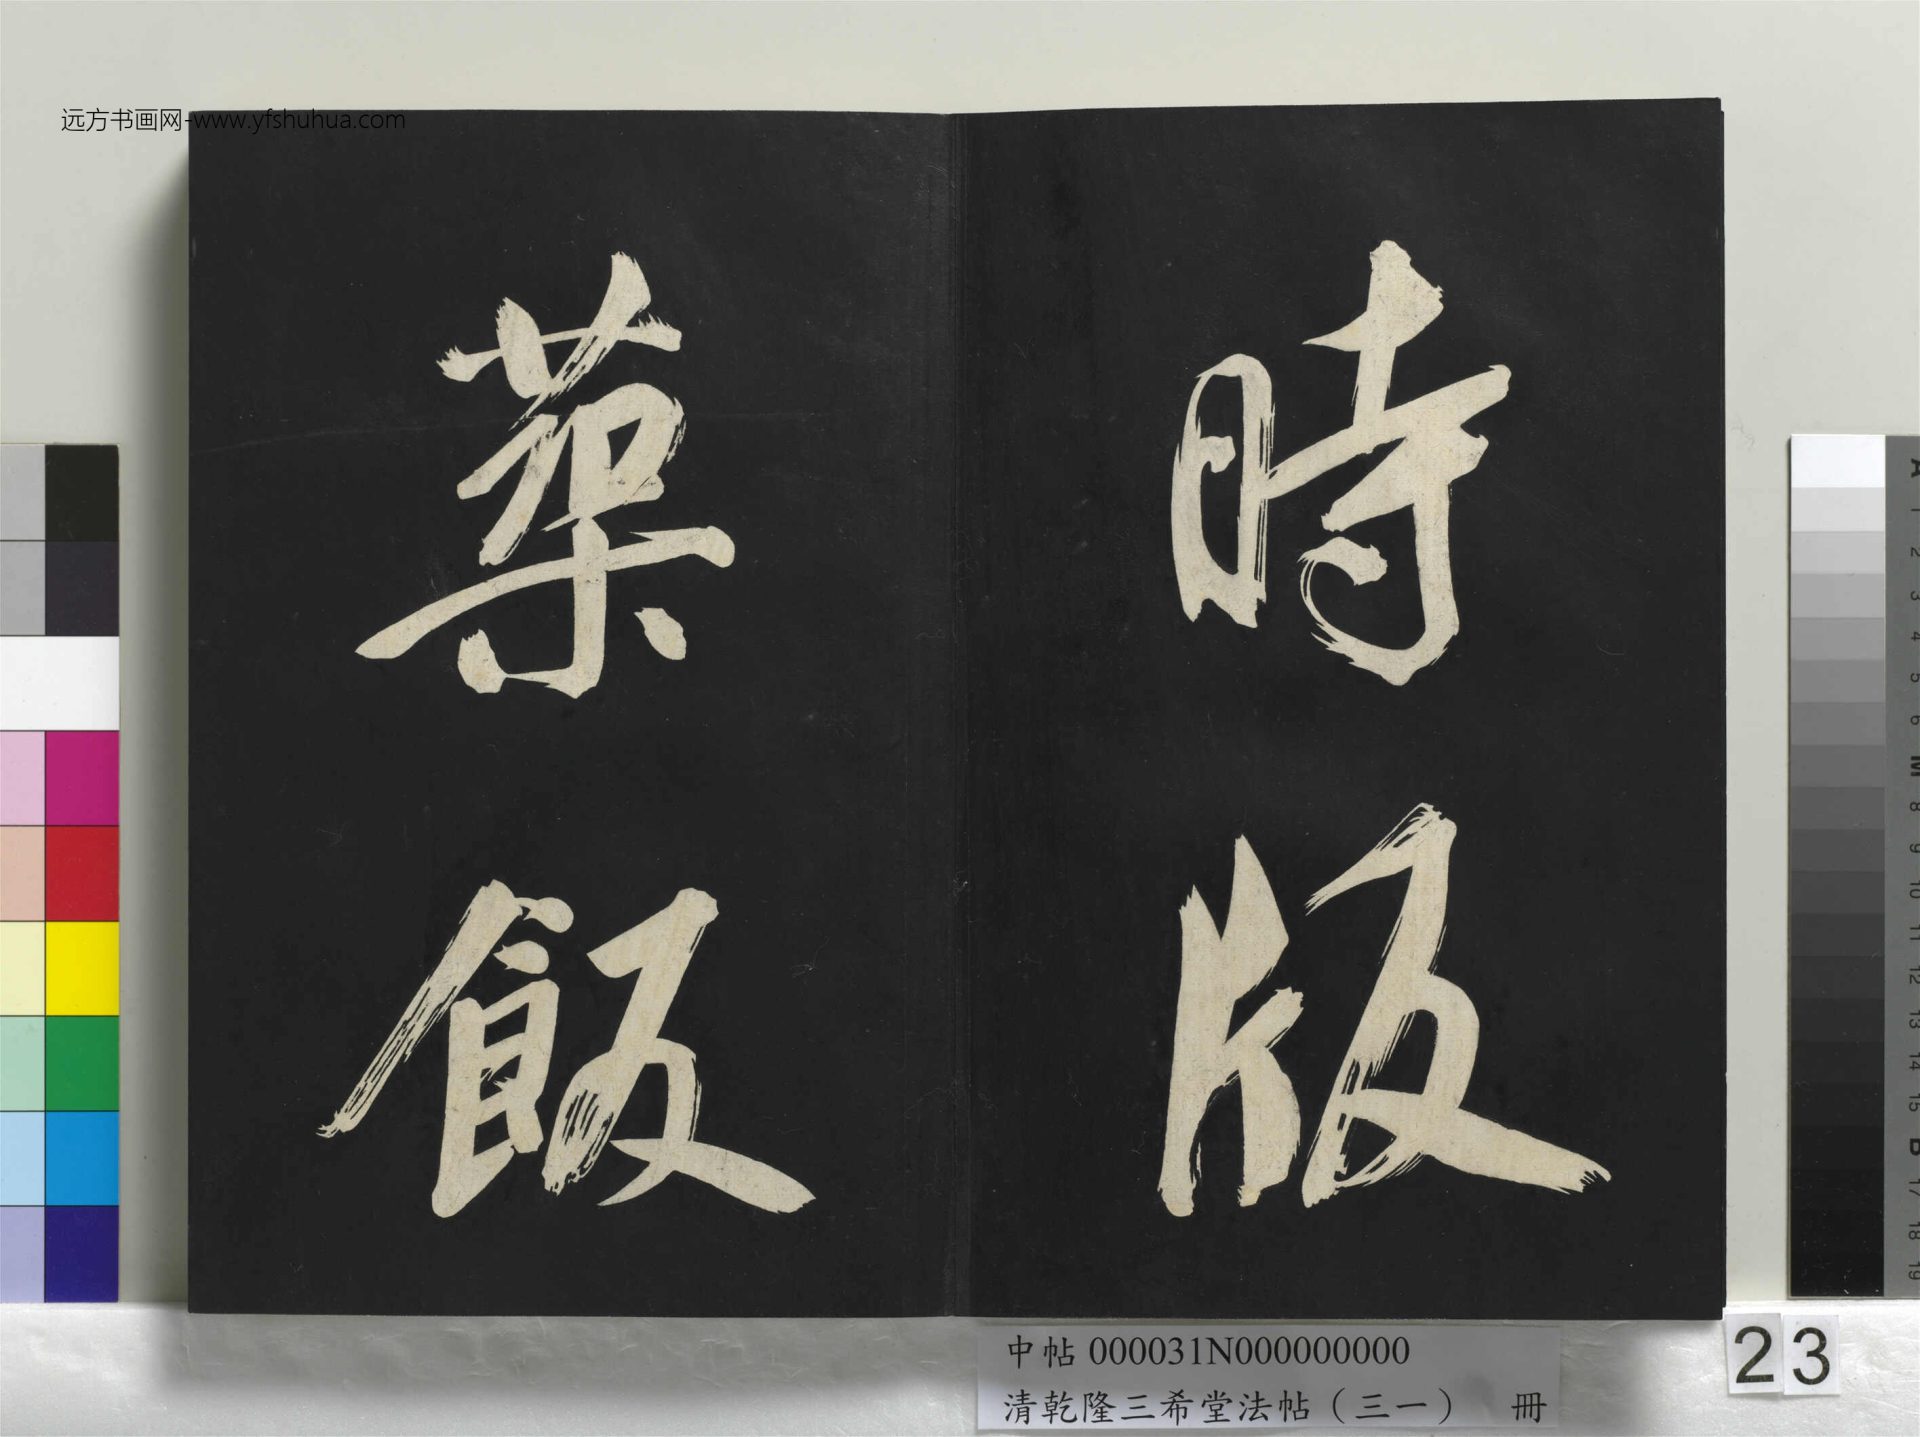 远方书画网-www.yfshuhua.com
時版
築飯
中帖 000031N000000000
清乾隆三希堂法帖（三一） 冊
23
A 1 2 3 4 5 6 M 8 9 10 11 12 13 14 15 B 17 18 19